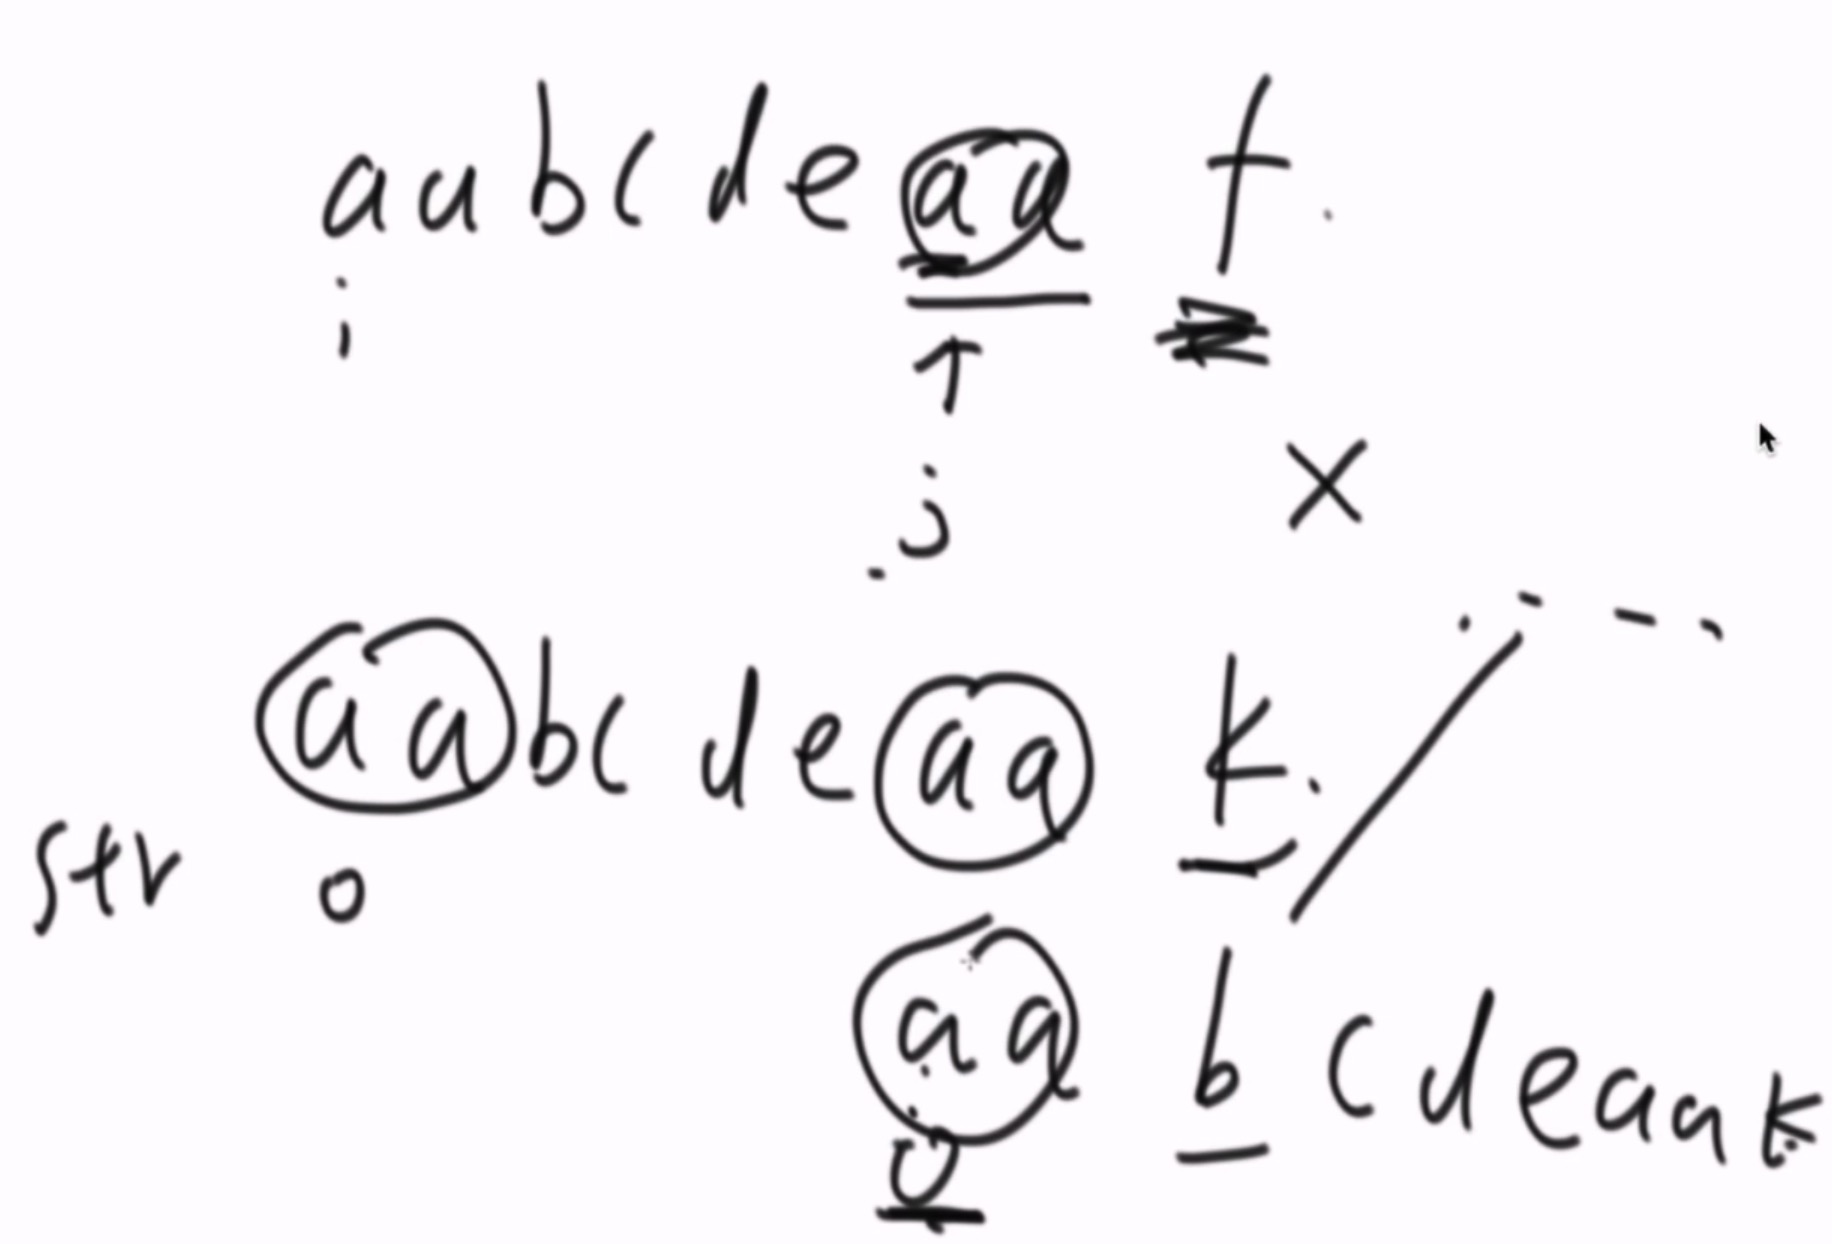 aabcdeaa f
i
j
aabcdeaa k
str 0
aa b cdeaak
0